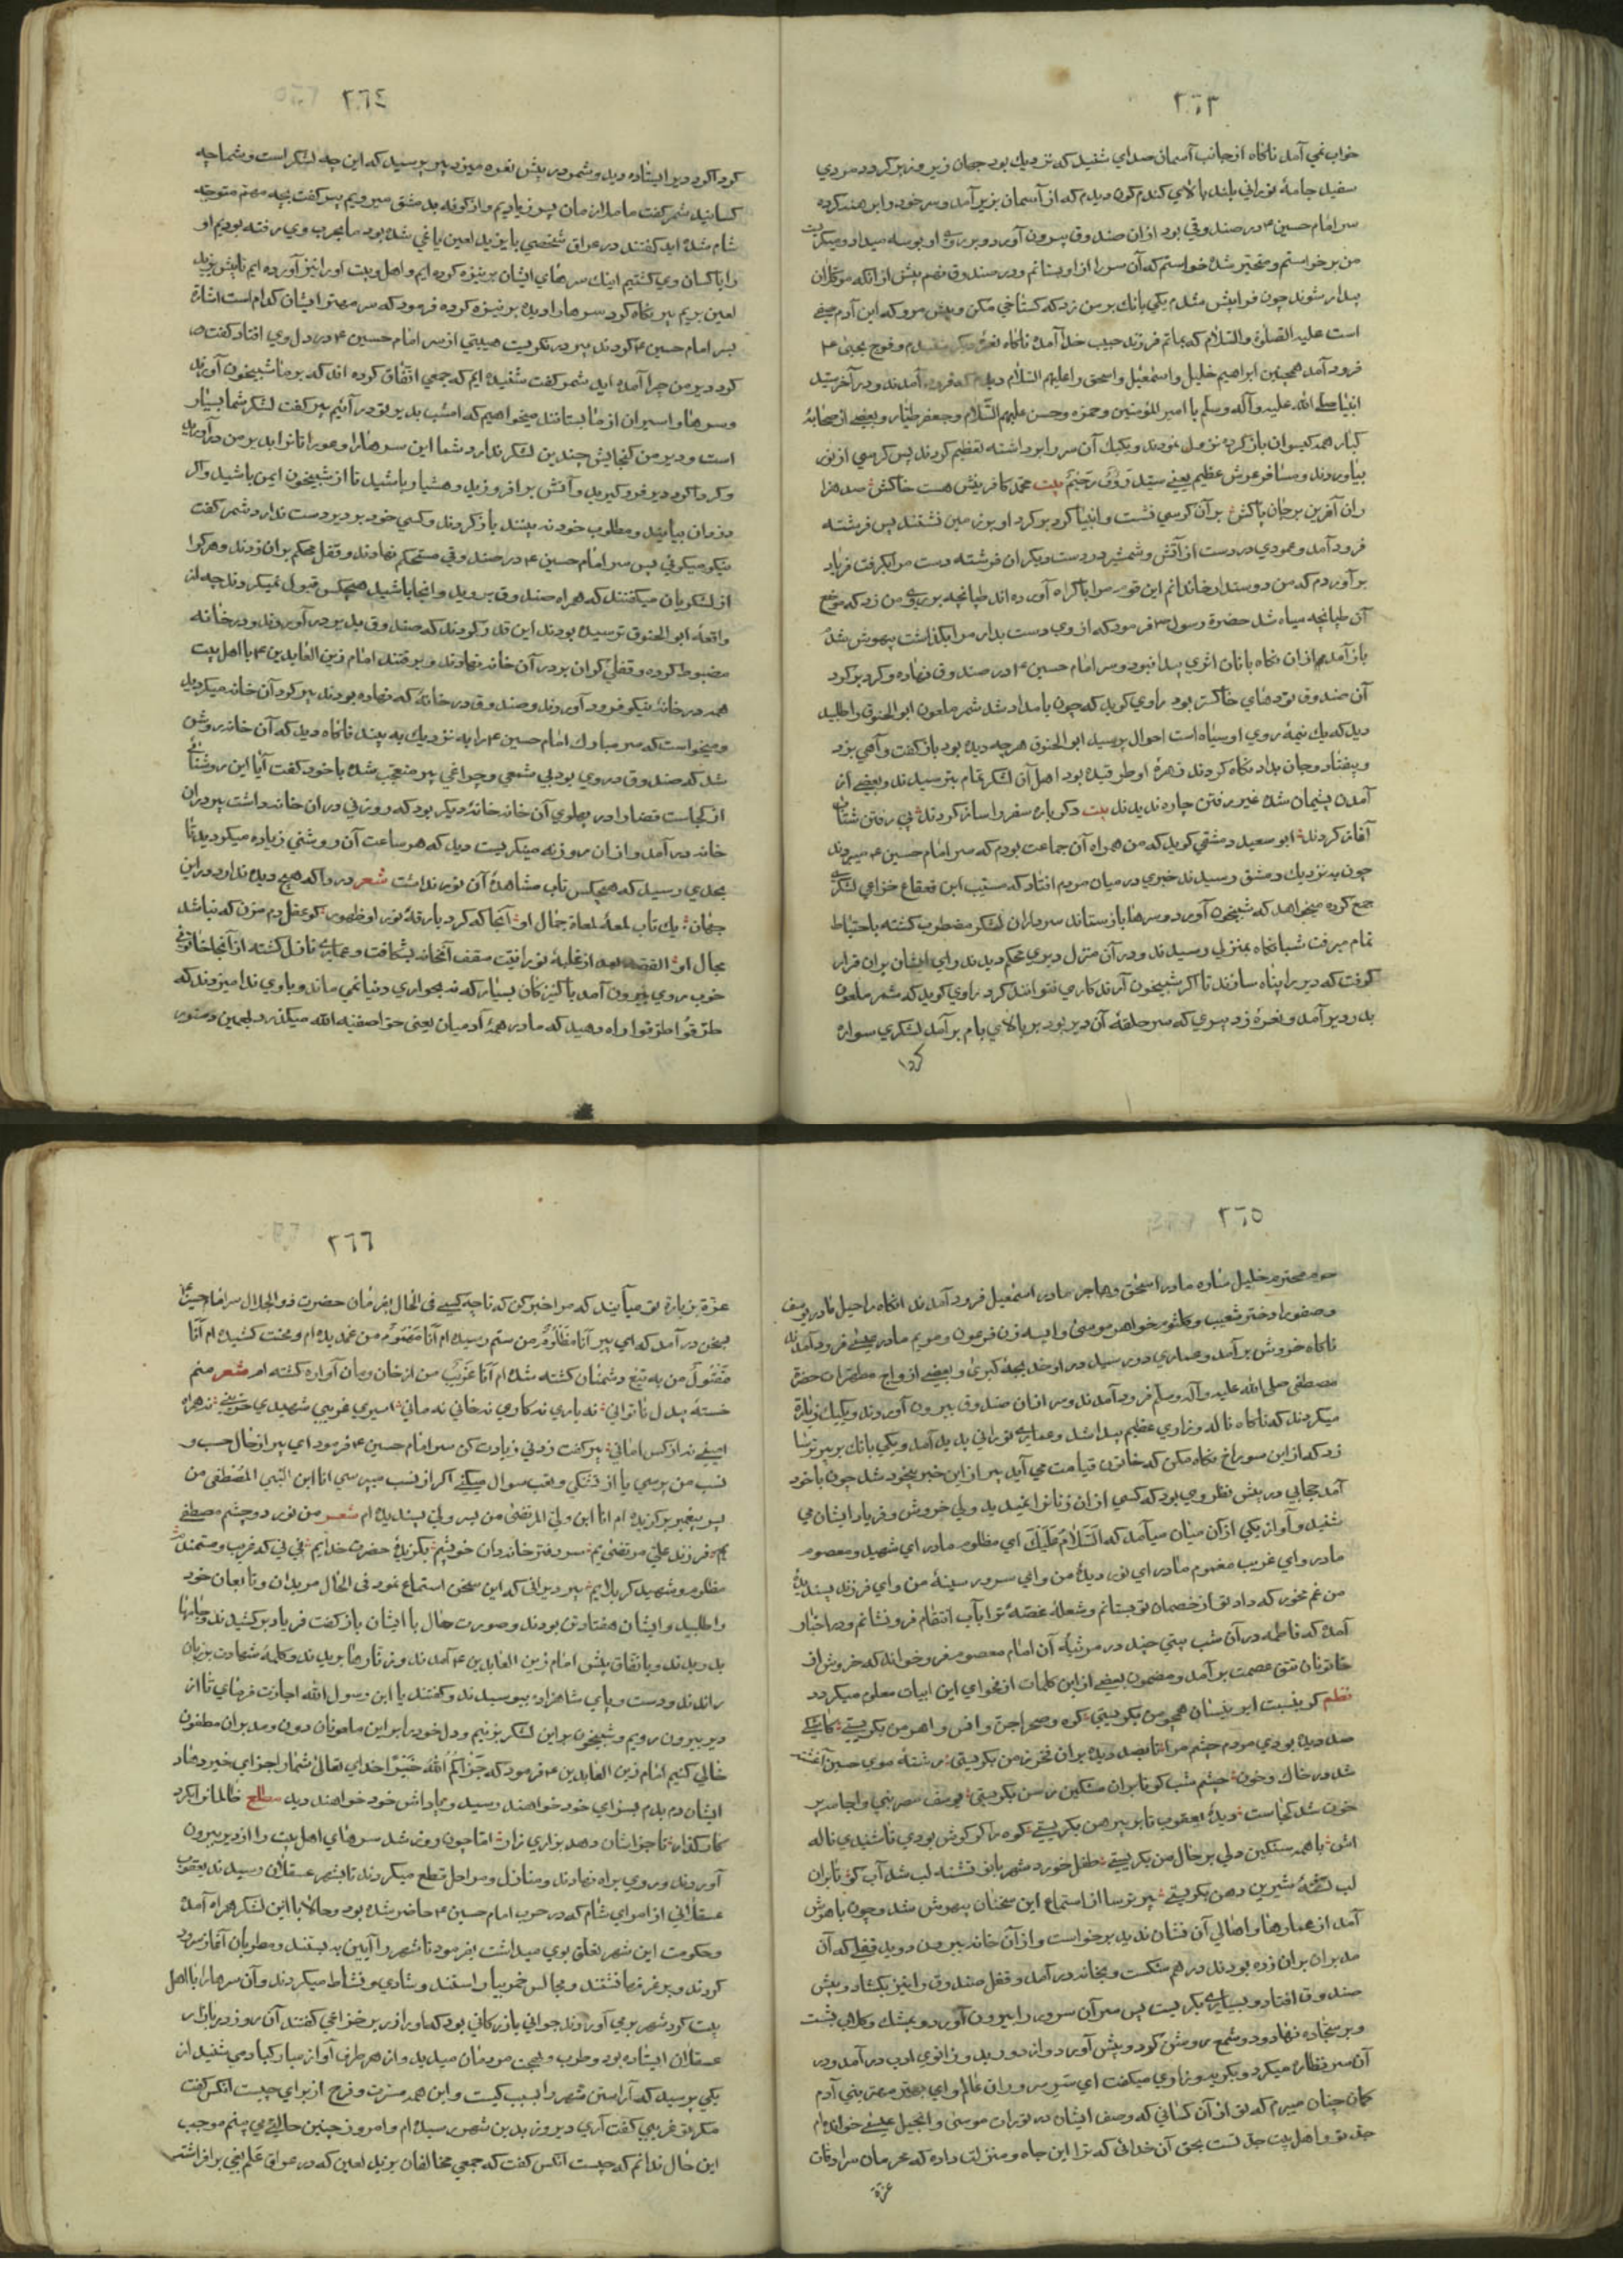 ٢٦٣
خواب نمي آمد ناكاه از جانب آسمان صداي شنيد كه نزديك بود جهان زير و زبر كردد مردي
سفيد جامهٔ نوراني بلند بالاي كندم كون ديدم كه از آسمان بزير آمد و سر خود را برهنه كرده
سر امام حسين ع در صندوقي بود از ان صندوق بيرون آورد و بر روي او بوسه ميداد و ميكريست
من برخواستم و متحير شدهٔ خواستم كه آن سر را از او بستانم و در صندوق نهم پيش از انكه موكلان
بيدار شوند چون فرا پيش شدم يكي بانك بر من زد كه كستاخي مكن و پيش مرو كه اين آدم صفي
است عليه الصلوة والسّلام كه بماتم فرزند حبيب خدا آمدهٔ ناكاه نعرهٔ ديكر شنيدم و نوح يحيى ع
فرود آمد همچنين ابراهيم خليل و اسمعيل و اسحق را عليهم السّلام ديدم كه فرود آمدند و در آخر سيد
انبيا صلے الله عليه وآله وسلم با امير المؤمنين و حمزه و حسن عليهم السّلام و جعفر طيّار و بعضے از صحابهٔ
كبار همه كيسوان باز كرده نزول نمودند و يكيك آن سر را بر داشته تعظيم كردند پس كرسي از نور
بياوردند و مسافر عرش عظيم يعنے سيّد رَؤُفٌ رَحيٖمٌ بيت محمد كافرينش هست خاكش صد هزا
ران آفرين بر جان پاكش بر آن كرسي نشست و انبيا كرد بر كرد او بر زمين نشستند پس فرشته
فرود آمد و عمودي در دست از آتش و شمشير در دست ديكر ان فرشته دست مرا بكرفت فرياد
بر آوردم كه من دوستدار خاندانم اين قوم مرا با كراه آورده اند طپانچه بر روي من زد كه موضع
آن طپانچه سياه شد حضرة رسول ص فرمود كه از وي دست بدار مرا بكذاشت بيهوش شدم
باز آمدم از ان نكاه بازان اثري پيدا نبود و سر امام حسين ع در صندوق نهاده و كرد بر كرد
آن صندوق توده هاي خاكستر بود راوي كويد كه چون بامداد شد شمر ملعون ابو الحنوق را طلبيد
ديد كه يك نيمهٔ روي او سياه است احوال پرسيد ابو الحنوق هر چه ديده بود باز كفت و آهي بزد
و بيفتاد و جان بداد نكاه كردند زهرهٔ او طرقيده بود اهل آن لشكر تمام بترسيدند و بعضے از
آمدن پشيمان شده غير رفتن چاره نديدند بيت دكر باره سفر را ساز كردند پي رفتن شتاب
آغاز كردند ابو سعيد دمشقي كويد كه من همراه آن جماعت بودم كه سر امام حسين ع ميبردند
چون به نزديك دمشق رسيدند خبري در ميان مردم افتاد كه مسيّب ابن قعقاع خزاعي لشكرے
جمع كرده ميخواهد كه شبيخون آورد و سرها باز ستاند سرداران لشكر مضطرب كشته باحتياط
تمام ميرفت شبانكاه بمنزلي رسيدند و در آن منزل ديري محكم ديدند راي ايشان بران قرار
كرفت كه دير را پناه سازند تا اكر شبيخون آرند كاري نتوانند كرد راوي كويد كه شمر ملعون
بدر دير آمد و نعرهٔ زد پيري كه سر حلقهٔ آن دير بود بر بالاي بام بر آمد لشكري سواره
كرد ا
٢٦٤
كرد اكرد دير ايستاده ديد و شمر در پيش نعره ميزد پير پرسيد كه اين چه لشكر است و شما چه
كسانيد شمر كفت ما ملازمان پسر زياديم و از كوفه بدمشق ميرويم پير كفت بچه مهم متوجه
شام شده ايد كفتند در عراق شخصي با يزيد لعين ياغي شده بود ما بحرب وي رفته بوديم او
را با كسان وي كشتيم اينك سرهاي ايشان بر نيزه كرده ايم و اهل و بيت او را نيز آورده ايم تا پيش يزيد
لعين بريم پير نكاه كرد سرها را ديد بر نيزه كرده فرمود كه سر مهتر ايشان كدام است اشارة
بسر امام حسين ع كردند پير در نكريست هيبتي از سر امام حسين ع در دل وي افتاد كفت
كرد دير من چرا آمده ايد شمر كفت شنيدهٔ ايم كه جمعي اتّفاق كرده اند كه بر ما شبيخون آورند
و سرها و اسيران از ما بستانند ميخواهيم كه امشب بدير تو در آئيم پير كفت لشكر شما بسيار
است و دير من كنجايش چندين لشكر ندارد شما اين سرها را و عورا تانرا بدير من در آوريد
و كردا كرد دير فرو كيريد و آتش بر افروزيد و هشيار باشيد تا از شبيخون ايمن باشيد و اكر
دزدان بيايند و مطلوب خود نه بينند باز كردند و كسي خود بر دير دست ندارد شمر كفت
نيكو ميكوئي پس سر امام حسين ع در صندوقي مستحكم نهادند و قفل محكم بر ان زدند و هر كرا
از لشكريان ميكفتند كه همراه صندوق برويد و انجا باشيد هيچكس قبول نميكردند چه از
واقعهٔ ابو الحنوق ترسيدهٔ بودند اين قدر كردند كه صندوق بدير در آوردند و در خانهٔ
مضبوط كرده و قفلي كران بر در آن خانه نهادند و برفتند امام زين العابدين ع با اهل بيت
همه در خانهٔ نيكو فرود آوردند و صندوق در خانهٔ كه نهاده بودند پير كرد آن خانه ميكرديد
و ميخواست كه سر مبارك امام حسين ع را به نزديك به بيند ناكاه ديد كه آن خانه روشن
شد كه صندوق در وي بود بي شمعي و چراغي پير متعجّب شدهٔ با خود كفت آيا اين روشنائے
از كجاست قضا را در پهلوي آن خانه خانهٔ ديكر بود كه روزني در ان خانه داشت پير در ان
خانه در آمد و از ان روزنه مينكريست ديد كه هر ساعت آن روشني زياده ميكرديد تا
بحدي رسيد كه هيچكس تاب مشاهدهٔ آن نور نداشت شعر دردا كه هيچ ديده ندارد در اين
جهان يك تاب لمعهٔ لمعاة جمال او آنجا كه كرد بارقهٔ نور او ظهور كو عقل دم مزن كه نباشد
مجال او القصه بعد از غلبهٔ نورانيت سقف آنخانه بشكافت و عماريے نازل كشته از آنجا خاتونے
خوب روي بيرون آمد با كنيزكان بسيار كه نه بحواري دنيا نمي ماند و با وي ندا ميزدند كه
طرّقُوا طرّقوا راه دهيد كه مادر همهٔ آدميان يعنى حوا صفيه الله ميكذرد بعد از ين و منور
٢٦٥
حرم محترم خليل ساره مادر اسحٰق و هاجر مادر اسمٰعيل فرود آمدند انكاه راحيل مادر يوسف
و صفورا دختر شعيب و كلثوم خواهر موسى و آسيه زن فرعون و مريم مادر عيسے فرود آمدند
ناكاه خروش بر آمد و عماري در رسيد در او خديجهٔ كبرى و بعضے ازواج مطهّرات حضرة
مصطفى صلى الله عليه وآله وسلم فرود آمدند و سر از ان صندوق بيرون آوردند و يكيك زيارة
ميكردند كه ناكاه ناله و زاري عظيم پيدا شد و عماريے نوراني پديد آمد و يكي بانك بر پير ترسا
زد كه از اين سوراخ نكاه مكن كه خاتون قيامت مي آيد پير از اين خبر بيخود شد چون با خود
آمد حجابي در پيش نظر وي بود كه كسي از ان زنانرا نميديد ولي خروش و فرياد ايشان مي
شنيد و آواز يكي از آن ميان ميآمد كه اَلسَّلامُ عَلَيْكَ اي مظلوم مادر اي شهيد و معصوم
مادر و اي غريب مغموم مادر اي نور ديدهٔ من و اي سرور سينهٔ من و اي فرزند پسنديدهٔ
من غم مخور كه داد تو از خصمان تو بستانم و شعلهٔ غصّهٔ ترا باب انتقام فرو نشانم و در اخبار
آمدهٔ كه فاطمه در آن شب بيتي چند در مرثيهٔ آن امام معصوم فرو خواند كه خروش از
خاتونان تتق عصمت بر آمد و مضمون بعضے از اين كلمات از فحواي اين ابيات معلوم ميكردد
نظم كو بنسبت ابر نيسان همچو من بكريستي كوه و صحرا جن و انس و اهرمن بكريستے كاشكے
صد ديده بودي مردم چشم مرا تا بصد ديده بران فخر زمن بكريستي رشتهٔ موي حسين آغشته
شد در خاك و خون چشم شب كو تا بران مشكين رسن بكريستي يوسف مصر نبي را جامه پر
خون شد كجاست ديدهٔ يعقوب تا بر پيرهن بكريستے كوه را كو كوش بودي تا شنيدي ناله
اش با همه سنكين دلي بر حال من بكريستے طفل خورد شهر بانو تشنه لب شد آب كو تا بران
لب تشنهٔ شيرين دهن بكريستے پير ترسا از استماع اين سخنان بيهوش شد و چون باهوش
آمد از عماريها و اهالي آن نشان نديد برخواست و از آن خانه بيرون دويد قفلي كه آن
مدبران بران زده بودند در هم شكست و بخانه در آمد و قفل صندوق را نيز بكشاد و پيش
صندوق افتاد و بسياريے بكريست پس سر آن سرور را بيرون آورد و بمشك و كلاب بشست
و بر سجّاده نهاد و دو شمع روشن كرد و پيش آورد و از دور ديد و زانوي ادب در آمد و در
آن سر نظاره ميكرد و بكريه و زاري ميكفت اي سر سروران عالم و اي مهتر مهتر بني آدم
كمان چنان ميبرم كه تو از آن كساني كه وصف ايشان در تورات موسى و انجيل عيسے خوانده ام
حق تو و اهل بيت حق تست بحق آن خدائى كه ترا اين جاه و منزلت داده كه محرمان سرادقات
عزة
٢٦٦
عزّة بزيارة تو ميآيند كه مرا خبر كن كه تا چه كسيے فى الحال بفرمان حضرت ذو الجلال سر امام حسين ع
بسخن در آمد كه اي پير اَنَا مَظْلُومٌ من ستم رسيده ام اَنَا مَهْمُومٌ من غمديده ام و محنت كشيده ام اَنَا
مَقْتُولٌ من به تيغ دشمنان كشته شده ام اَنَا غَريبٌ من از خان و مان آواره كشته ام شعر منم
خستهٔ بيدل ناتواني نه ياري نه كاري نه خاني نه ماني اسيري غريبي شهيدي حزينے نه همراه
پير كفت زدني زيادت كن سر امام حسين ع فرمود اي پير از حال حسب و
نسب من پرسي يا از تشنكي و تعب سوال ميكنے اكر از نسب ميپرسي انا ابن النّبي المُصْطفى من
پسر پيغمبر بركزيدهٔ ام انا ابن وليّ المرتضى من پسر وليّ پسنديدهٔ ام شعر من نور دو چشم مصطفے
يم فرزند عليّ مرتضى يم سر دفتر خاندان خويشم بكزيدهٔ حضرت خدايم ني ني كه غريب و مستمندم
مظلوم و شهيد كربلايم پير ديراني كه اين سخن استماع نمود فى الحال مريدان و تابعان خود
را طلبيد و ايشان هفتاد تن بودند و صورت حال با ايشان باز كفت فرياد بر كشيدند و جامها
بدريدند و باتفاق پيش امام زين العابدين ع آمدند و زنّارها بريدند و كلمهٔ شهادت بر زبان
راندند و دست و پاي شاهزادهٔ ببوسيدند و كفتند يا ابن رسول الله اجازت فرماي تا از
دير بيرون رويم و شبيخون بر اين لشكر بزنيم و دل خود را بر اين ملعونان دون و مدبران مطعون
خالي كنيم امام زين العابدين ع فرمود كه جَزاكُمُ اللهُ خَيْرًا خداي تعالىٰ شما را جزاي خير دهاد
ايشان دم بدم بسزاي خود خواهند رسيد و پاداش خود خواهند ديد مطلع ظالمانرا بكرد
كار كذار تا جز ايشان دهد بزاري زار امّا چون روز شد سرهاي اهل بيت را از دير بيرون
آوردند و روي براه نهادند و منازل و مراحل قطع ميكردند تا بشهر عسقلان رسيدند يعقوب
عسقلاني از امراي شام كه در حرب امام حسين ع حاضر شدهٔ بود و حالا با اين لشكر همراه آمدهٔ
و حكومت اين شهر تعلّق بوي ميداشت بفرمود تا شهر را آيين به بستند و مطربان آغاز سرود
كردند و بر غرفها نشستند و مجالس خمر بياراستند و شادي و نشاط ميكردند و آن سرها را با اهل
بيت كرد شهر بر مي آوردند جواني بازركاني بود كه او را زرير خزاعي كفتند آن روز در بازار
عسقلان ايستاده بود و طرب و بهجت مردمان ميديد و از هر طرف آواز مباركباد مي شنيد از
يكي پرسيد كه آراستن شهر را سبب چيست و اين همه مسرّت و فرح از براي چيست انكس كفت
مكر تو غريبي كفت آري ديروز بدين شهر رسيدهٔ ام و امروز چنين حالتے مي بينم موجب
اين حال ندانم كه چيست آنكس كفت كه جمعي مخالفان يزيد لعين كه در عراق عَلَم بغي بر افراشته